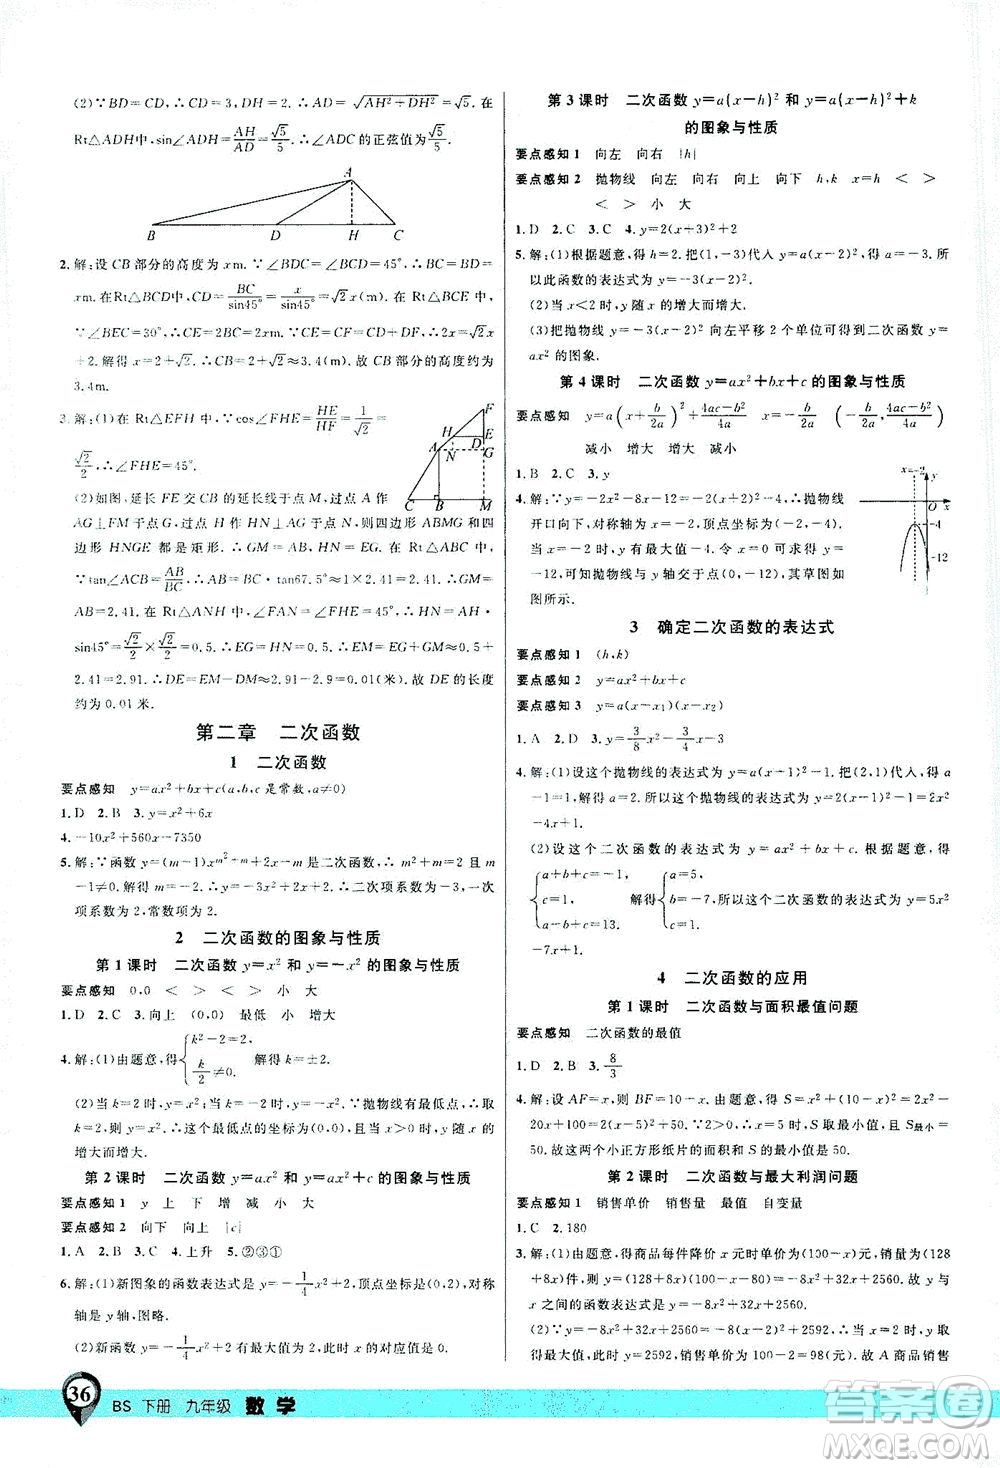 (2)∵BD=CD,∴CD=3,DH=2.∴AD=√(AH²+DH²)=√5.在
Rt△ADH中,sin∠ADH=AH/AD=√5/5.∴∠ADC的正弦值为√5/5.
A
B D H C
2.解:设CB部分的高度为x m.∵∠BDC=∠BCD=45°,∴BC=BD=
x m.在Rt△BCD中,CD=BC/sin45°=x/sin45°=√2x(m).在Rt△BCE中,
∵∠BEC=30°,∴CE=2BC=2x m.∵CE=CF=CD+DF=√2x
+2.解得x=2+√2.∴BC=2+√2≈3.4(m).故CB部分的高度约为
3.4m.
3.解:(1)在Rt△EFH中,∵cos∠FHE=HE/HF=1/√2=
√2/2.∴∠FHE=45°.
(2)如图,延长FE交CB的延长线于点M,过点A作
AG⊥FM于点G,过点H作HN⊥AG于点N,则四边形ABMG和四
边形HNGE都是矩形.∴GM=AB,HN=EG.在Rt△ABC中,
∵tan∠ACB=AB/BC.∴AB=BC·tan67.5°≈1×2.41=2.41.∴GM=
AB=2.41.在Rt△ANH中,∠FAN=∠FHE=45°,∴HN=AH·
sin45°=√2/2×√2/2=0.5.∴EG=HN=0.5.∴EM=EG+GM=0.5+
2.41=2.91.∴DE=EM-DM=2.91-2.9=0.01(米).故DE的长度
约为0.01米.
第二章 二次函数
1 二次函数
要点感知 y=ax²+bx+c(a,b,c是常数,a≠0)
1.D 2.B 3.y=x²+6x
4.-10x²+560x-7350
5.解:∵函数y=(m-1)x^(m²+1)+4mx+2是二次函数,∴m²+1=2且m
-1≠0.解得m=-1.∴y=-3x²+2x+2.∴二次项系数为-3,一次
项系数为2,常数项为2.
2 二次函数的图象与性质
第1课时 二次函数y=x²和y=-x²的图象与性质
要点感知 0,0 < > < > 小 大
1.D 2.C 3.向上 (0,0) 最低 小 增大
4.解:(1)由题意,得{k²-2=2, k/2≠0. 解得k=±2.
(2)当k=2时,y=x²;当k=-2时,y=-x².∵抛物线有最低点,∴k=
2.∴y=x².∴这个最低点的坐标为(0,0).当x>0时,y随x的增大而
增大.
第2课时 二次函数y=ax²和y=ax²+c的图象与性质
要点感知1 y 上 下 增 减 小 大
要点感知2 向下 向上 |c|
1.A 2.C 3.C 4.上升 5.②③①
6.解:(1)新图象的函数表达式是y=-1/4x²+2,顶点坐标是(0,2),对称
轴是y轴,图略.
(2)新函数y=-1/4x²+2有最大值为2,此时x的对应值是0.
第3课时 二次函数y=a(x-h)²和y=a(x-h)²+k
的图象与性质
要点感知1 向左 向右 |h|
要点感知2 抛物线 向左 向右 向上 向下 h,k x=h < >
< > 小 大
1.D 2.C 3.C 4.y=2(x+3)²+2
5.解:(1)根据题意,得h=2.把(1,-3)代入y=a(x-2)²,得a=-3.所
以此函数的表达式为y=-3(x-2)².
(2)当x<2时,y随x的增大而增大.
(3)把抛物线y=-3(x-2)²向左平移2个单位可得到二次函数y=
ax²的图象.
第4课时 二次函数y=ax²+bx+c的图象与性质
要点感知 y=a(x+b/2a)²+(4ac-b²)/4a x=-b/2a (-b/2a,(4ac-b²)/4a)
减小 增大 增大 减小
1.B 2.C 3.y
4.解:∵y=-2x²-8x-12=-2(x+2)²-4,∴抛物线
开口向下,对称轴为x=-2,顶点坐标为(-2,-4).
当x=-2时,y有最大值-4.令x=0可得y=
-12,可知抛物线与y轴交于点(0,-12),其草图如
图所示.
3 确定二次函数的表达式
要点感知1 (h,k)
要点感知2 y=ax²+bx+c
要点感知3 y=a(x-x₁)(x-x₂)
1.A 2.D 3.y=3/8x²-3/4x-3
4.解:(1)设这个抛物线的表达式为y=a(x-2)²-1.把(2,1)代入,得4a
-1=1.解得a=
(2)设这个二次函数的表达式为y=ax²+bx+c.根据题意,得
{a+b+c=-1, c=1, a-b+c=13. 解得{a=5, b=-7, c=1. 所以这个二次函数的表达式为y=5x²
-7x+1.
4 二次函数的应用
第1课时 二次函数与面积最值问题
要点感知 二次函数的最值
1.D 2.B 3.8/3
4.解:设AF=x,则BF=10-x.由题意,得S=x²+(10-x)²=2x²-
20x+100=2(x-5)²+50.∵2>0,∴当x=5时,S取最小值,S最小=
50.故这两个小正方形纸片的面积和S的最小值为50.
第2课时 二次函数与最大利润问题
要点感知1 销售单价 销售量 最值 自变量
1.C 2.180
3.解:(1)由题意,得商品每件降价x元时单价为(100-x)元,销售量为(128
+8x)件,则y=(128+8x)(100-x-80)=-8x²+32x+2560.故y与
x之间的函数表达式为y=-8x²+32x+2560.
(2)∵y=-8x²+32x+2560=-8(x-2)²+2592,∴当x=2时,y有最
大值,最大值为y=2592,此时销售单价为100-2=98(元).故A商品销售
36
BS 下册 九年级 数学
答案圈
MXQE.COM